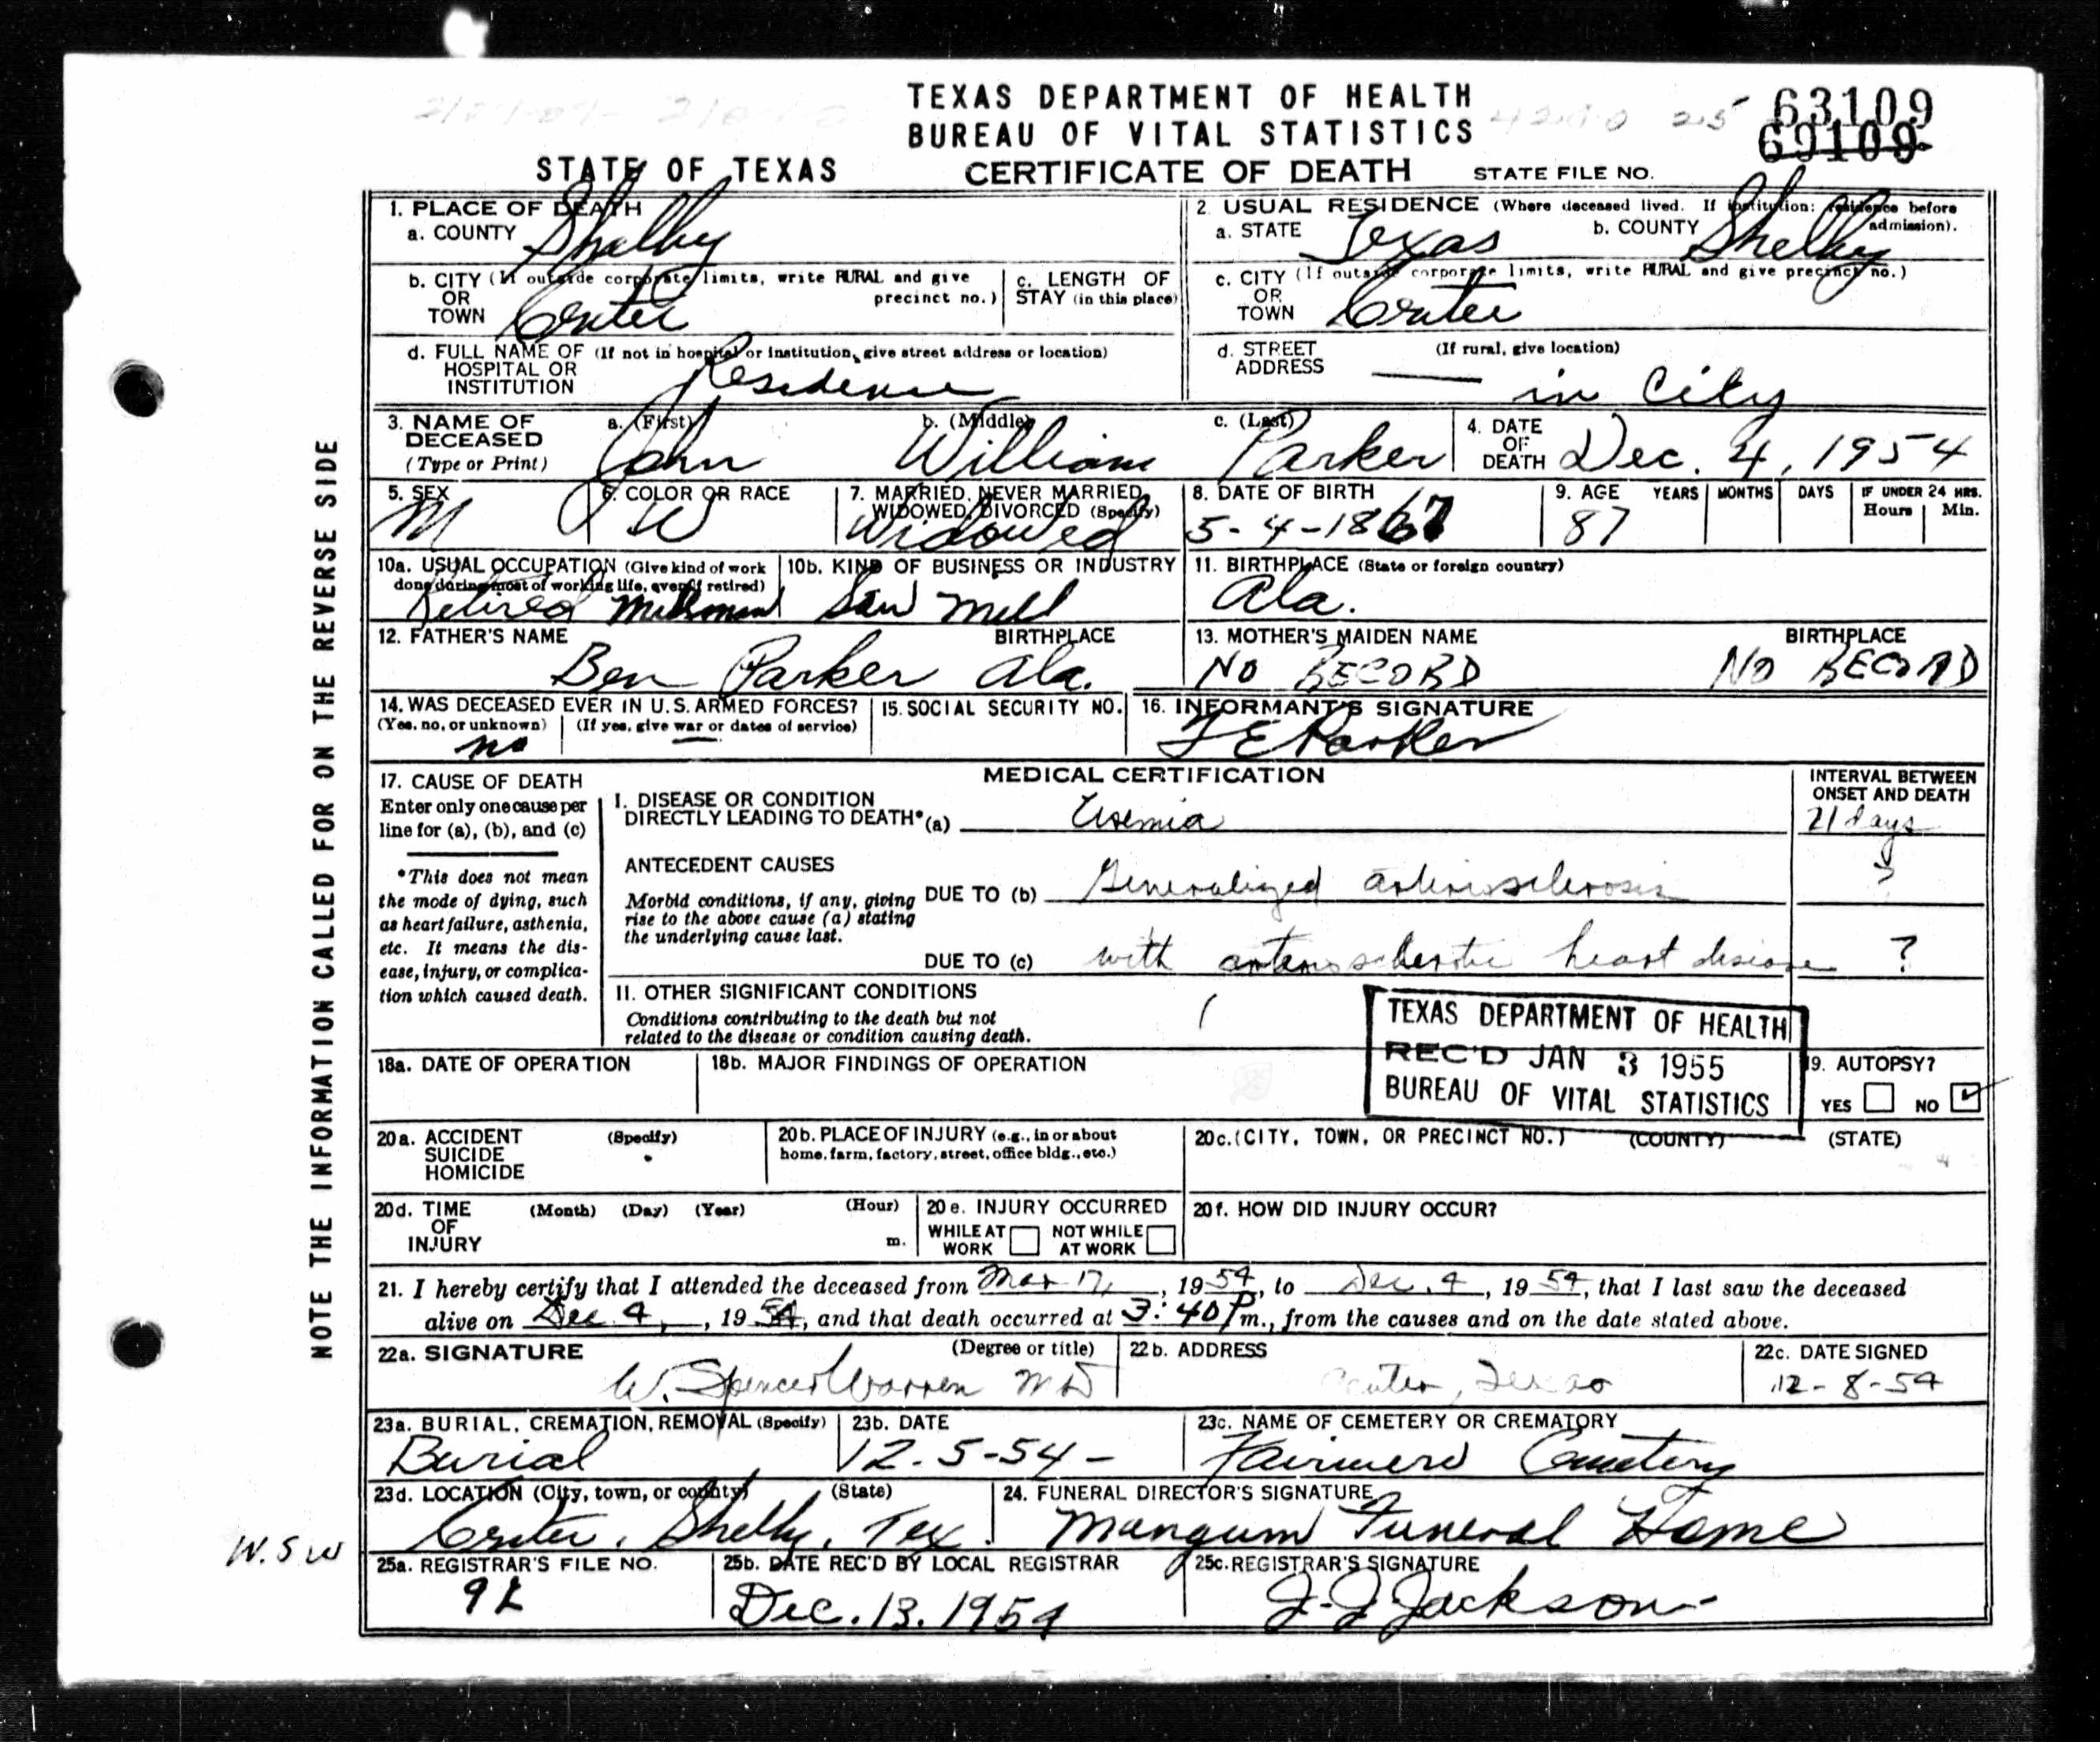 TEXAS DEPARTMENT OF HEALTH
BUREAU OF VITAL STATISTICS
63109
69109
STATE OF TEXAS CERTIFICATE OF DEATH STATE FILE NO.
NOTE THE INFORMATION CALLED FOR ON THE REVERSE SIDE
1. PLACE OF DEATH
a. COUNTY Shelby
2. USUAL RESIDENCE (Where deceased lived. If institution: residence before admission).
a. STATE Texas b. COUNTY Shelby
b. CITY (If outside corporate limits, write RURAL and give precinct no.)
OR
TOWN Center
c. LENGTH OF
STAY (in this place)
c. CITY (If outside corporate limits, write RURAL and give precinct no.)
OR
TOWN Center
d. FULL NAME OF (If not in hospital or institution, give street address or location)
HOSPITAL OR
INSTITUTION Residence
d. STREET (If rural, give location)
ADDRESS — in City
3. NAME OF DECEASED (Type or Print)
a. (First) John b. (Middle) William c. (Last) Parker
4. DATE OF DEATH Dec. 4, 1954
5. SEX M
6. COLOR OR RACE W
7. MARRIED, NEVER MARRIED, WIDOWED, DIVORCED (Specify) Widowed
8. DATE OF BIRTH 5-4-1867
9. AGE YEARS MONTHS DAYS IF UNDER 24 HRS.
Hours Min.
87
10a. USUAL OCCUPATION (Give kind of work
done during most of working life, even if retired)
Retired Millman
10b. KIND OF BUSINESS OR INDUSTRY
Saw Mill
11. BIRTHPLACE (State or foreign country)
Ala.
12. FATHER'S NAME BIRTHPLACE
Ben Parker Ala.
13. MOTHER'S MAIDEN NAME BIRTHPLACE
NO RECORD NO RECORD
14. WAS DECEASED EVER IN U.S. ARMED FORCES?
(Yes, no, or unknown) (If yes, give war or dates of service)
no —
15. SOCIAL SECURITY NO.
16. INFORMANT'S SIGNATURE
F E Parker
17. CAUSE OF DEATH
Enter only one cause per
line for (a), (b), and (c)
*This does not mean
the mode of dying, such
as heart failure, asthenia,
etc. It means the dis-
ease, injury, or complica-
tion which caused death.
MEDICAL CERTIFICATION
INTERVAL BETWEEN
ONSET AND DEATH
I. DISEASE OR CONDITION
DIRECTLY LEADING TO DEATH* (a) Uremia 21 days
ANTECEDENT CAUSES
Morbid conditions, if any, giving
rise to the above cause (a) stating
the underlying cause last.
DUE TO (b) Generalized arteriosclerosis ?
DUE TO (c) with arteriosclerotic heart disease ?
II. OTHER SIGNIFICANT CONDITIONS
Conditions contributing to the death but not
related to the disease or condition causing death.
TEXAS DEPARTMENT OF HEALTH
REC'D JAN 3 1955
BUREAU OF VITAL STATISTICS
18a. DATE OF OPERATION
18b. MAJOR FINDINGS OF OPERATION
19. AUTOPSY?
YES NO
20a. ACCIDENT (Specify)
SUICIDE
HOMICIDE
20b. PLACE OF INJURY (e.g., in or about
home, farm, factory, street, office bldg., etc.)
20c. (CITY, TOWN, OR PRECINCT NO.) (COUNTY) (STATE)
20d. TIME (Month) (Day) (Year) (Hour)
OF
INJURY m.
20e. INJURY OCCURRED
WHILE AT WORK NOT WHILE AT WORK
20f. HOW DID INJURY OCCUR?
21. I hereby certify that I attended the deceased from Mar 17, 1954, to Dec. 4, 1954, that I last saw the deceased
alive on Dec 4, 1954, and that death occurred at 3:40 P m., from the causes and on the date stated above.
22a. SIGNATURE (Degree or title)
W. Spencer Warren MD
22b. ADDRESS
Center, Texas
22c. DATE SIGNED
12-8-54
23a. BURIAL, CREMATION, REMOVAL (Specify)
Burial
23b. DATE
12-5-54-
23c. NAME OF CEMETERY OR CREMATORY
Cemetery
23d. LOCATION (City, town, or county) (State)
Center, Shelby, Tex.
24. FUNERAL DIRECTOR'S SIGNATURE
Mangum Funeral Home
W.S.W
25a. REGISTRAR'S FILE NO.
25b. DATE REC'D BY LOCAL REGISTRAR
Dec. 13. 1954
25c. REGISTRAR'S SIGNATURE
J. J. Jackson